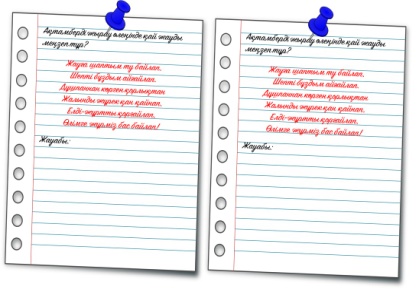 Ақтамберді жырау өлеңінде қай жауды
меңзеп тұр?
Жауға шаптым ту байлап,
Шепті бұздым айғайлап,
Дұшпаннан көрген қорлықтан
Жалынды жүрек қан қайнап.
Елді-жұртты қорғайлап,
Өлімге жүрміз бас байлап!
Жауабы:
Ақтамберді жырау өлеңінде қай жауды
меңзеп тұр?
Жауға шаптым ту байлап,
Шепті бұздым айғайлап,
Дұшпаннан көрген қорлықтан
Жалынды жүрек қан қайнап.
Елді-жұртты қорғайлап,
Өлімге жүрміз бас байлап!
Жауабы: